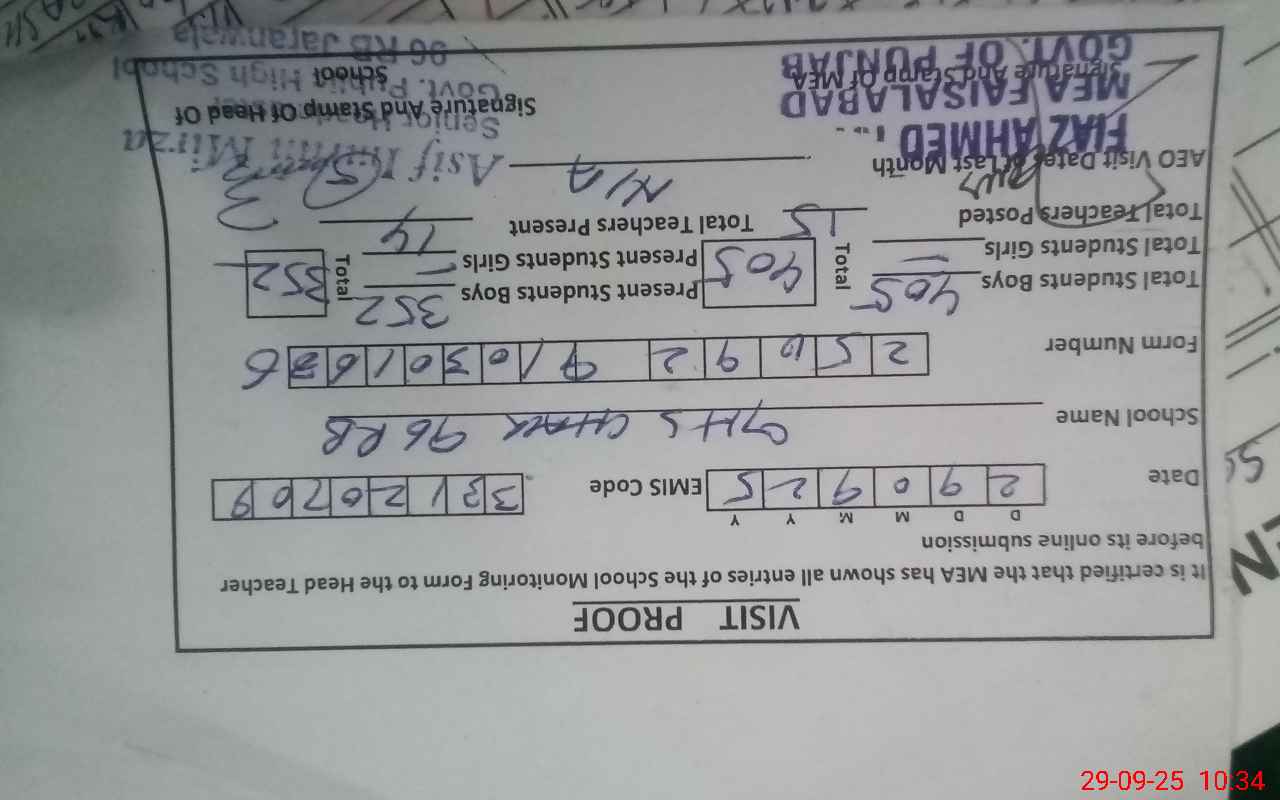 VISIT PROOF
It is certified that the MEA has shown all entries of the School Monitoring Form to the Head Teacher
before its online submission
D D M M Y Y
Date 2 9 0 9 2 5 EMIS Code 3 3 1 2 0 7 0 9
School Name GHS CHAK 96 RB
Form Number
Total Students Boys 405 Total 405 Present Students Boys 352 Total 352
Total Students Girls — Present Students Girls —
Total Teachers Posted 15 Total Teachers Present 14
AEO Visit Dates of Last Month N/A
FIAZ AHMED
MEA FAISALABAD
GOVT. OF PUNJAB
Signature And Stamp Of MEA
Asif Mirza
Senior
Signature And Stamp Of Head Of
School
Govt. High School
96 RB Jaranwala
29-09-25 10:34